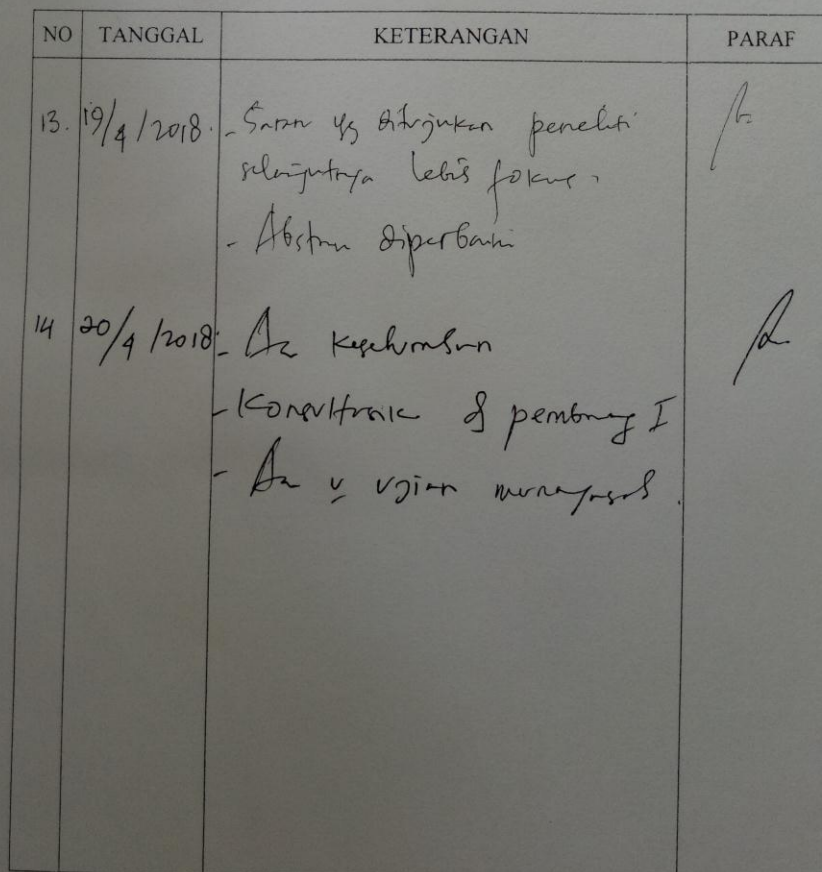 NO TANGGAL KETERANGAN PARAF
13. 19/4/2018. - Saran yg ditujukan peneliti
selanjutnya lebih fokus.
- Abstrak diperbaiki
14 20/4/2018. - Acc keseluruhan
- Konsultasik dg pembimbing I
- Acc u ujian munaqasah.